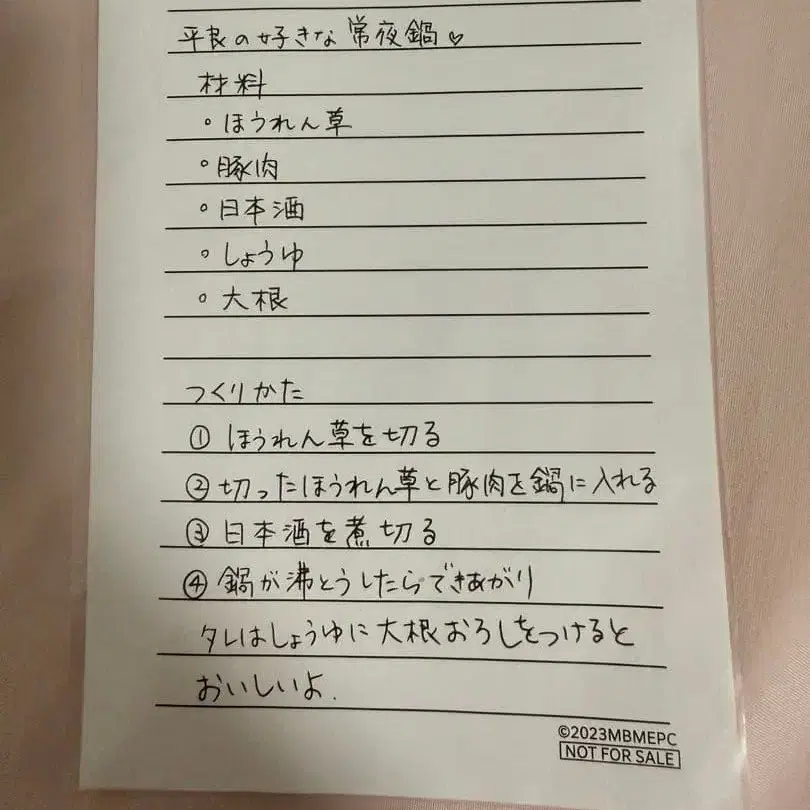 平良の好きな常夜鍋♡
材料
◦ほうれん草
◦豚肉
◦日本酒
◦しょうゆ
◦大根
つくりかた
①ほうれん草を切る
②切ったほうれん草と豚肉を鍋に入れる
③日本酒を煮切る
④鍋が沸とうしたらできあがり
タレはしょうゆに大根おろしをつけると
おいしいよ.
©2023MBMEPC
NOT FOR SALE